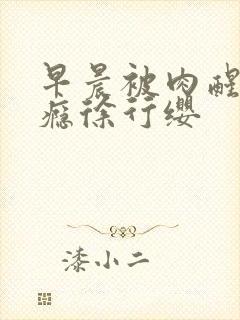 早晨被肉醒
瘾徐行缨
漆小二